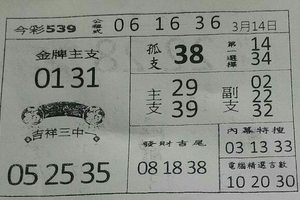 今彩539 公程式 06 16 36 3月14日
金牌主支
01 31
吉祥三中一
05 25 35
孤支 38
第一選擇 14 34
主支 29 39
副支 02 22 32
發財吉尾
08 18 38
內幕特撞
03 13 33
電腦精選吉數
10 20 30